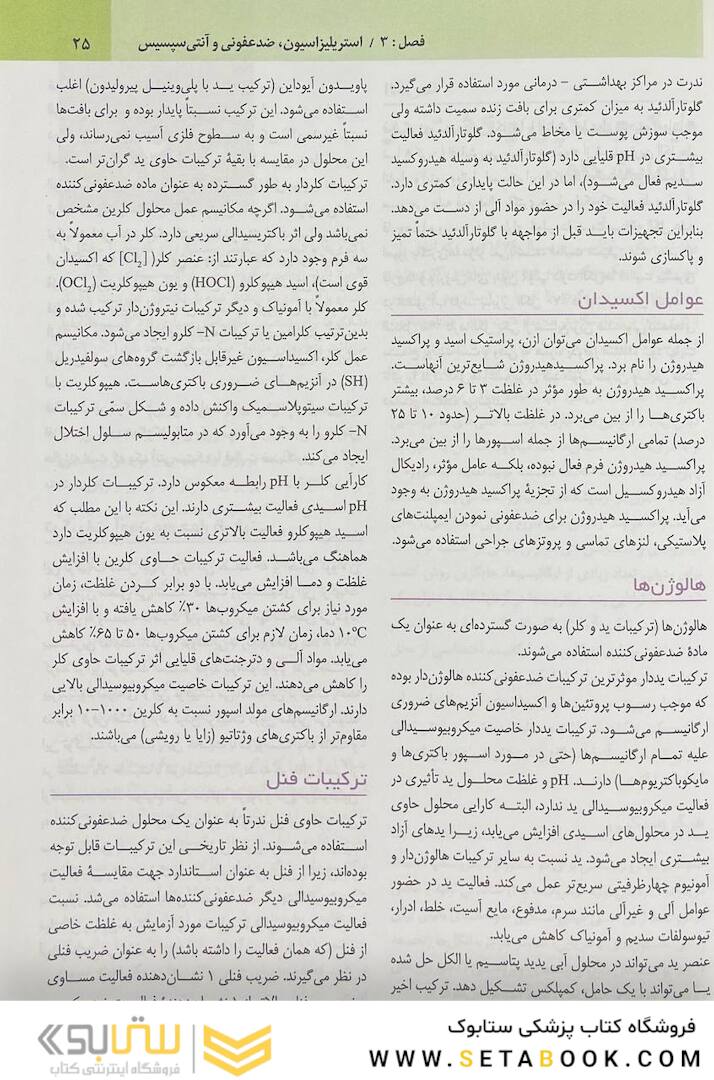 فصل: ۳ / استریلیزاسیون، ضدعفونی و آنتی‌سپسیس
۲۵
ندرت در مراکز بهداشتی – درمانی مورد استفاده قرار می‌گیرد.
گلوتارآلدئید به میزان کمتری برای بافت زنده سمیت داشته ولی
موجب سوزش پوست یا مخاط می‌شود. گلوتارآلدئید فعالیت
بیشتری در pH قلیایی دارد (گلوتارآلدئید به وسیله هیدروکسید
سدیم فعال می‌شود)، اما در این حالت پایداری کمتری دارد.
گلوتارآلدئید فعالیت خود را در حضور مواد آلی از دست می‌دهد.
بنابراین تجهیزات باید قبل از مواجهه با گلوتارآلدئید حتماً تمیز
و پاکسازی شوند.
عوامل اکسیدان
از جمله عوامل اکسیدان می‌توان ازن، پراستیک اسید و پراکسید
هیدروژن را نام برد. پراکسیدهیدروژن شایع‌ترین آنهاست.
پراکسید هیدروژن به طور مؤثر در غلظت ۳ تا ۶ درصد، بیشتر
باکتری‌ها را از بین می‌برد. در غلظت بالاتر (حدود ۱۰ تا ۲۵
درصد) تمامی ارگانیسم‌ها از جمله اسپورها را از بین می‌برد.
پراکسید هیدروژن فرم فعال نبوده، بلکه عامل مؤثر، رادیکال
آزاد هیدروکسیل است که از تجزیهٔ پراکسید هیدروژن به وجود
می‌آید. پراکسید هیدروژن برای ضدعفونی نمودن ایمپلنت‌های
پلاستیکی، لنزهای تماسی و پروتزهای جراحی استفاده می‌شود.
هالوژن‌ها
هالوژن‌ها (ترکیبات ید و کلر) به صورت گسترده‌ای به عنوان یک
مادهٔ ضدعفونی‌کننده استفاده می‌شوند.
ترکیبات یددار موثرترین ترکیبات ضدعفونی‌کننده هالوژن‌دار بوده
که موجب رسوب پروتئین‌ها و اکسیداسیون آنزیم‌های ضروری
ارگانیسم می‌شود. ترکیبات یددار خاصیت میکروبیوسیدالی
علیه تمام ارگانیسم‌ها (حتی در مورد اسپور باکتری‌ها و
مایکوباکتریوم‌ها) دارند. pH و غلظت محلول ید تأثیری در
فعالیت میکروبیوسیدالی ید ندارد، البته کارایی محلول حاوی
ید در محلول‌های اسیدی افزایش می‌یابد، زیرا یدهای آزاد
بیشتری ایجاد می‌شود. ید نسبت به سایر ترکیبات هالوژن‌دار و
آمونیوم چهارظرفیتی سریع‌تر عمل می‌کند. فعالیت ید در حضور
عوامل آلی و غیرآلی مانند سرم، مدفوع، مایع آسیت، خلط، ادرار،
تیوسولفات سدیم و آمونیاک کاهش می‌یابد.
عنصر ید می‌تواند در محلول آبی یدید پتاسیم یا الکل حل شده
یا می‌تواند با یک حامل، کمپلکس تشکیل دهد. ترکیب اخیر
پاویدون آیوداین (ترکیب ید با پلی‌وینیل پیرولیدون) اغلب
استفاده می‌شود. این ترکیب نسبتاً پایدار بوده و برای بافت‌ها
نسبتاً غیرسمی است و به سطوح فلزی آسیب نمی‌رساند، ولی
این محلول در مقایسه با بقیهٔ ترکیبات حاوی ید گران‌تر است.
ترکیبات کلردار به طور گسترده به عنوان ماده ضدعفونی‌کننده
استفاده می‌شود. اگرچه مکانیسم عمل محلول کلرین مشخص
نمی‌باشد ولی اثر باکتریسیدالی سریعی دارد. کلر در آب معمولاً به
سه فرم وجود دارد که عبارتند از: عنصر کلر( [Cl₂] که اکسیدان
قوی است)، اسید هیپوکلرو (HOCl) و یون هیپوکلریت (OCl₂).
کلر معمولاً با آمونیاک و دیگر ترکیبات نیتروژن‌دار ترکیب شده و
بدین‌ترتیب کلرامین یا ترکیبات N– کلرو ایجاد می‌شود. مکانیسم
عمل کلر، اکسیداسیون غیرقابل بازگشت گروه‌های سولفیدریل
(SH) در آنزیم‌های ضروری باکتری‌هاست. هیپوکلریت با
ترکیبات سیتوپلاسمیک واکنش داده و شکل سمّی ترکیبات
N– کلرو را به وجود می‌آورد که در متابولیسم سلول اختلال
ایجاد می‌کند.
کارآیی کلر با pH رابطه معکوس دارد. ترکیبات کلردار در
pH اسیدی فعالیت بیشتری دارند. این نکته با این مطلب که
اسید هیپوکلرو فعالیت بالاتری نسبت به یون هیپوکلریت دارد
هماهنگ می‌باشد. فعالیت ترکیبات حاوی کلرین با افزایش
غلظت و دما افزایش می‌یابد. با دو برابر کردن غلظت، زمان
مورد نیاز برای کشتن میکروب‌ها ۳۰٪ کاهش یافته و با افزایش
۱۰°C دما، زمان لازم برای کشتن میکروب‌ها ۵۰ تا ۶۵٪ کاهش
می‌یابد. مواد آلی و دترجنت‌های قلیایی اثر ترکیبات حاوی کلر
را کاهش می‌دهند. این ترکیبات خاصیت میکروبیوسیدالی بالایی
دارند. ارگانیسم‌های مولد اسپور نسبت به کلرین ۱۰۰۰–۱۰ برابر
مقاوم‌تر از باکتری‌های وژتاتیو (زایا یا رویشی) می‌باشند.
ترکیبات فنل
ترکیبات حاوی فنل ندرتاً به عنوان یک محلول ضدعفونی‌کننده
استفاده می‌شوند. از نظر تاریخی این ترکیبات قابل توجه
بوده‌اند، زیرا از فنل به عنوان استاندارد جهت مقایسهٔ فعالیت
میکروبیوسیدالی دیگر ضدعفونی‌کننده‌ها استفاده می‌شد. نسبت
فعالیت میکروبیوسیدالی ترکیبات مورد آزمایش به غلظت خاصی
از فنل (که همان فعالیت را داشته باشد) را به عنوان ضریب فنلی
در نظر می‌گیرند. ضریب فنلی ۱ نشان‌دهنده فعالیت مساوی
فروشگاه کتاب پزشکی ستابوک
WWW.SETABOOK.COM
ستابوک
فروشگاه اینترنتی کتاب